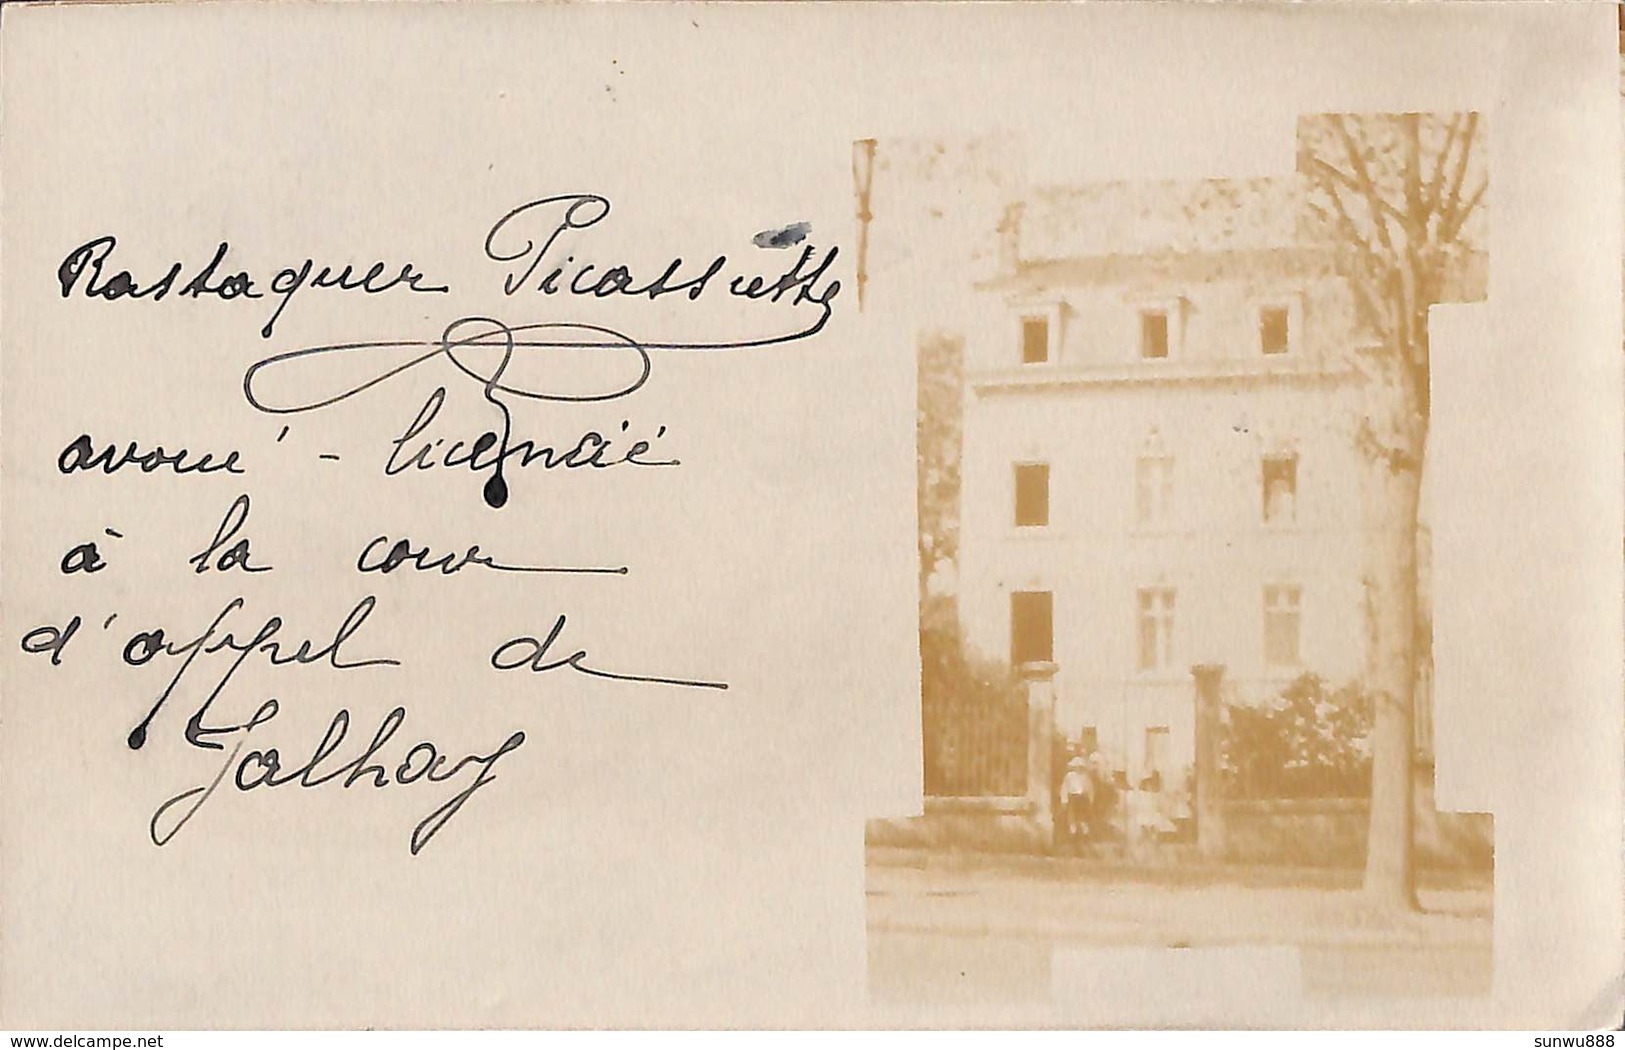 Rastaquer Picassiette
avoué - licencié
à la cour
d'appel de
Jalhay
delcampe.net
sunwu888